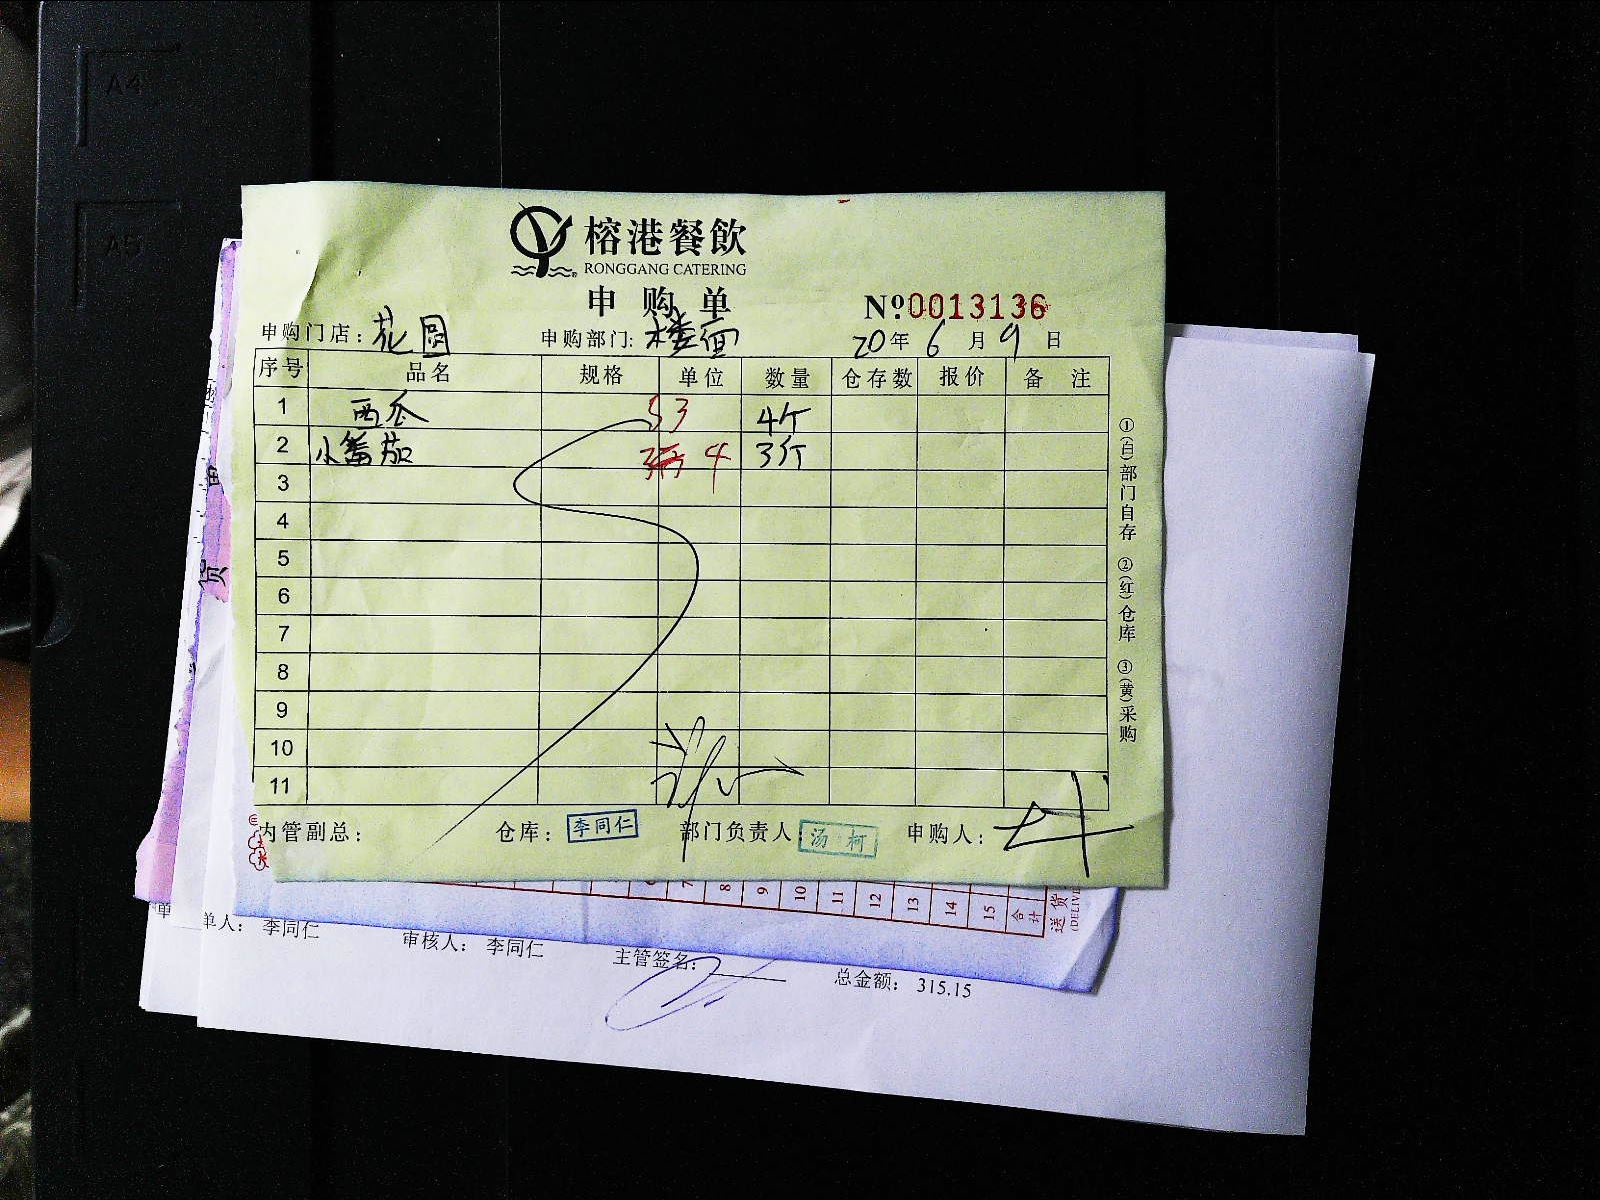 A4
A5
榕港餐飲
RONGGANG CATERING
申购单
Nº0013136
申购门店:花圆 申购部门:楼面 20年6月9日
序号 品名 规格 单位 数量 仓存数 报价 备注
1 西瓜 53 4斤
2 小番茄 4 3斤
3
4
5
6
7
8
9
10
11
内管副总: 仓库:李同仁 部门负责人:汤柯 申购人:
①(白)部门自存 ②(红)仓库 ③(黄)采购
货
7 8 9 10 11 12 13 14 15 合计
送货
单人: 李同仁 审核人: 李同仁 主管签名: 总金额: 315.15